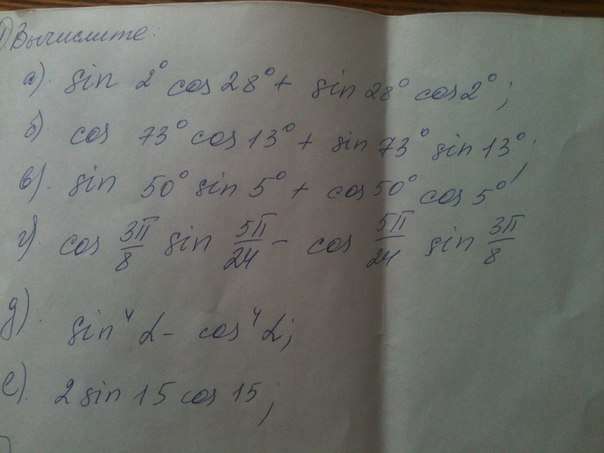 1) Вычислите:
а). sin 2° cos 28° + sin 28° cos 2°;
б). cos 73° cos 13° + sin 73° sin 13°;
в). sin 50° sin 5° + cos 50° cos 5°
г) cos 3π/8 sin 5π/24 - cos 5π/24 sin 3π/8
д). sin⁴ α - cos⁴ α;
е). 2 sin 15 cos 15;